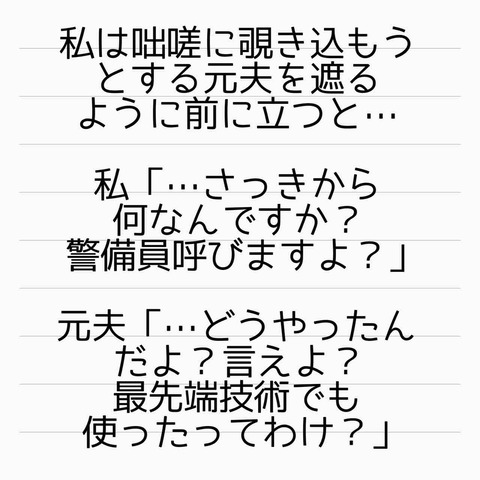 私は咄嗟に覗き込もう
とする元夫を遮る
ように前に立つと…
私「…さっきから
何なんですか？
警備員呼びますよ？」
元夫「…どうやったん
だよ？言えよ？
最先端技術でも
使ったってわけ？」